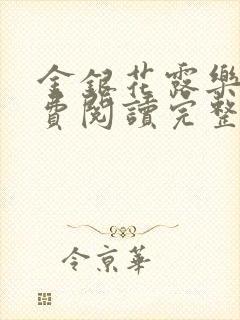 金銀花露樂
費閱讀完整
令京華